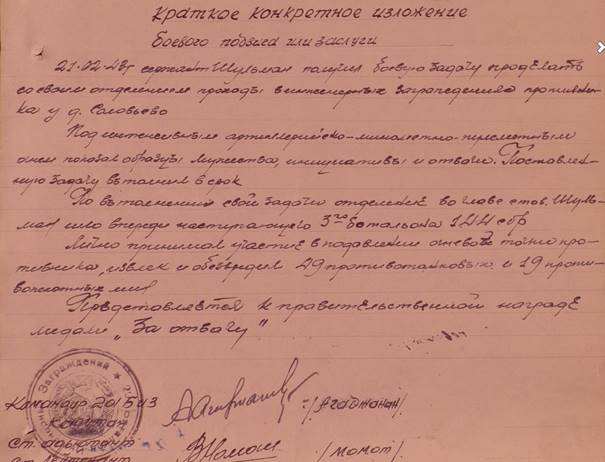 Краткое конкретное изложение
боевого подвига или заслуги
21.02.43г сержант Шульман получил боевую задачу проделать
со своим отделением проходы в инженерных заграждениях против
ка у д. Соловьево
Под интенсивным артиллерийско-минометно-пулеметным
огнем показал образцы мужества, инициативы и отваги. Поставлен-
ную задачу выполнил в срок
По выполнении свой задачи отделение во главе с тов. Шуль-
ман шло впереди наступающего 3го батальона 144 сбр
Лично принимал участие в подавлении огневой точки про-
тивника, извлек и обезвредил 29 противотанковых и 19 проти-
вопехотных мин
Представляется к правительственной награде
медали „За отвагу"
Заграждений
Командир 201 БИЗ
капитан /Агаджанан/
Ст. адъютант
Ст. лейтенант /Момот/